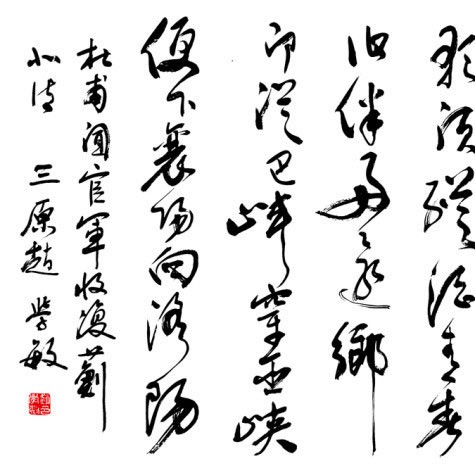 歌須縱酒青春
作伴好還鄉
即從巴峽穿巫峽
便下襄陽向洛陽
杜甫聞官軍收復薊
北詩 三原趙學敏